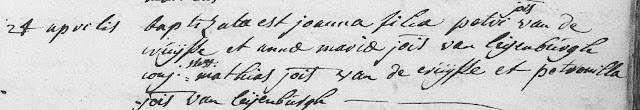 24 aprilis baptizata est joanna filia petri jois van de
cruijsse et annæ mariæ jois van leijenburgh
conj: susc: mathias jois van de cruijsse et petronilla
jois van leijenburgh